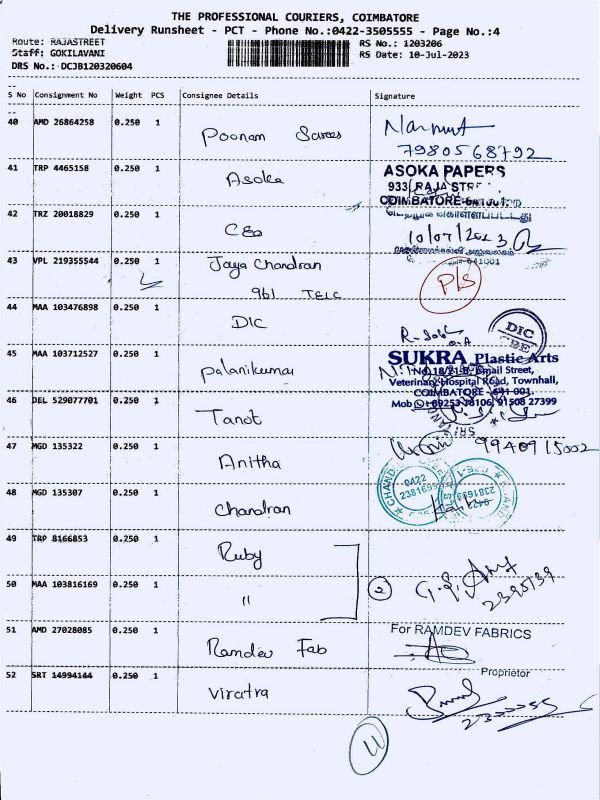 THE PROFESSIONAL COURIERS, COIMBATORE
Delivery Runsheet - PCT - Phone No.:0422-3505555 - Page No.:4
Route: RAJASTREET
RS No.: 1203206
Staff: GOKILAVANI
RS Date: 10-Jul-2023
DRS No.: DCJB120320604
S No Consignment No Weight PCS Consignee Details Signature
40 AMD 26864258 0.250 1 Poonam Sarees
7980568792
41 TRP 4465158 0.250 1 Asoka
ASOKA PAPERS
933, RAJA STR
COIMBATORE-641
42 TRZ 20018829 0.250 1 CEO
10/07/2023
641001
43 VPL 219355544 0.250 1 Jaya Chandran
961 TELC
P/S
44 MAA 103476898 0.250 1 DIC
DIC
CBE
45 MAA 103712527 0.250 1 Palanikumar
SUKRA Plastic Arts
No.18/21-B, Ismail Street,
Veterinary Hospital Road, Townhall,
COIMBATORE - 641 001.
Mob : 89253 78106, 91508 27399
46 DEL 529077701 0.250 1 Tanot
47 MGD 135322 0.250 1 Anitha
9940915002
48 MGD 135307 0.250 1 Chandran
CHAND
0422
49 TRP 8166853 0.250 1 Ruby
50 MAA 103816169 0.250 1 "
2
2395139
51 AMD 27028085 0.250 1 Ramdev Fab
For RAMDEV FABRICS
Proprietor
52 SRT 14994144 0.250 1 Viratra
11